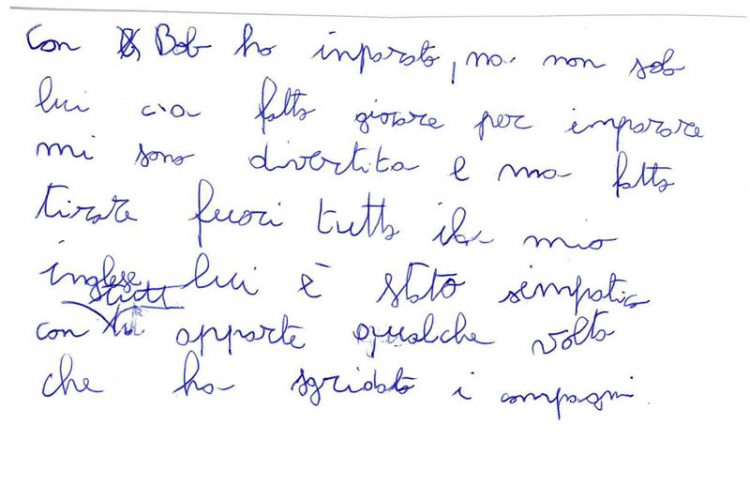 Con Bob ho inparato, ma non solo
lui ci a fatto giocare per imparare
mi sono divertita e ma fatto
tirare fuori tutto il mio
inglese lui è stato simpatico
con tutti apparte qualche volta
che ha sgridato i compagni.